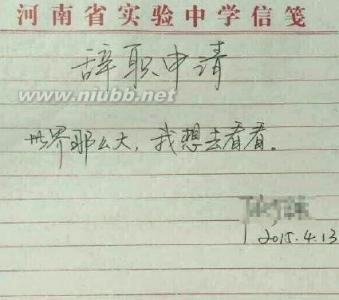 河南省实验中学信笺
辞职申请
www.niubb.net
世界那么大，我想去看看。
2015.4.13